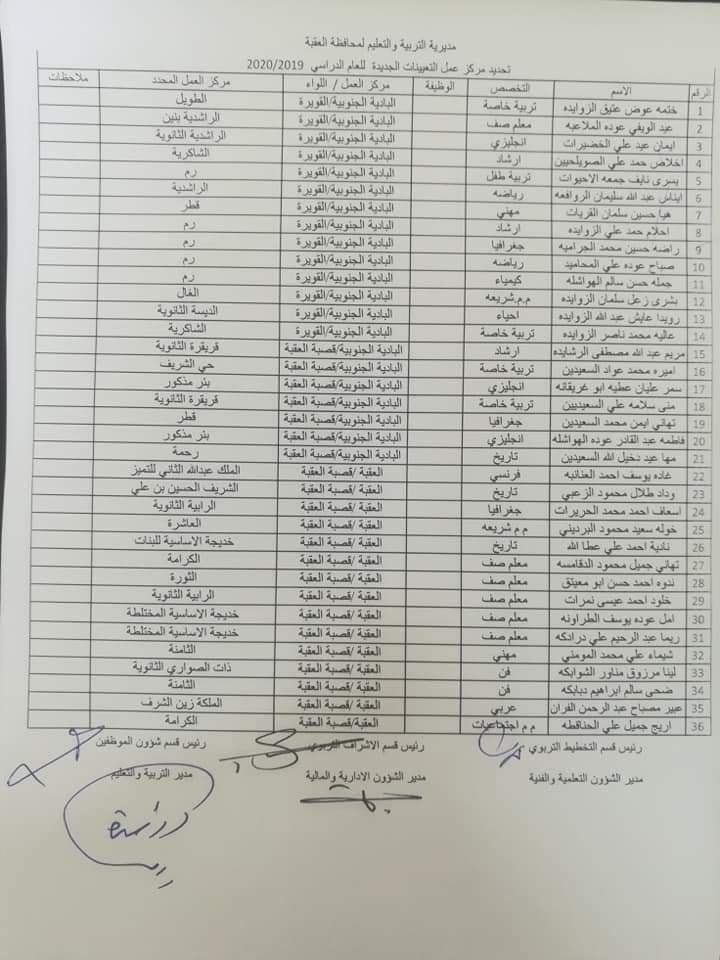 مديرية التربية والتعليم لمحافظة العقبة
تحديد مركز عمل التعيينات الجديدة للعام الدراسي 2020/2019
الرقم الاسم التخصص الوظيفة مركز العمل / اللواء مركز العمل المحدد ملاحظات
1 ختمه عوض عتيق الزوايده تربية خاصة البادية الجنوبية/القويرة الطويل
2 عيد الويفي عوده الملاعبه معلم صف البادية الجنوبية/القويرة الراشدية بنين
3 ايمان عيد علي الخضيرات انجليزي البادية الجنوبية/القويرة الراشدية الثانوية
4 اخلاص حمد علي الصويلحيين ارشاد البادية الجنوبية/القويرة الشاكرية
5 يسرى نايف جمعه الاحيوات تربية طفل البادية الجنوبية/القويرة رم
6 ايناس عبد الله سليمان الروافعه رياضه البادية الجنوبية/القويرة الراشدية
7 هيا حسين سلمان القريات مهني البادية الجنوبية/القويرة قطر
8 احلام حمد علي الزوايده ارشاد البادية الجنوبية/القويرة رم
9 راضه حسين محمد الجراميه جغرافيا البادية الجنوبية/القويرة رم
10 صباح عوده علي المحاميد رياضه البادية الجنوبية/القويرة رم
11 جمله حسن سالم الهواشله كيمياء البادية الجنوبية/القويرة رم
12 بشرى زعل سلمان الزوايده م.م.شريعه البادية الجنوبية/القويرة الغال
13 رويدا عايش عبد الله الزوايده احياء البادية الجنوبية/القويرة الديسة الثانوية
14 عاليه محمد ناصر الزوايده تربية خاصة البادية الجنوبية/القويرة الشاكرية
15 مريم عبد الله مصطفى الرشايده ارشاد البادية الجنوبية/قصبة العقبة قريقرة الثانوية
16 اميره محمد عواد السعيدين تربية خاصة البادية الجنوبية/قصبة العقبة حي الشريف
17 سمر عليان عطيه ابو غريقانه انجليزي البادية الجنوبية/قصبة العقبة بئر مذكور
18 منى سلامه علي السعيديين تربية خاصة البادية الجنوبية/قصبة العقبة قريقرة الثانوية
19 تهاني ايمن محمد السعيدين جغرافيا البادية الجنوبية/قصبة العقبة قطر
20 فاطمه عبد القادر عوده الهواشله انجليزي البادية الجنوبية/قصبة العقبة بئر مذكور
21 مها عيد دخيل الله السعيدين تاريخ البادية الجنوبية/قصبة العقبة رحمة
22 غاده يوسف احمد العنانبه فرنسي العقبة /قصبة العقبة الملك عبدالله الثاني للتميز
23 وداد طلال محمود الزعبي تاريخ العقبة /قصبة العقبة الشريف الحسين بن علي
24 اسعاف احمد محمد الحريرات جغرافيا العقبة /قصبة العقبة الرابية الثانوية
25 خوله سعيد محمود البرديني م م شريعه العقبة /قصبة العقبة العاشرة
26 نادية احمد علي عطا الله تاريخ العقبة /قصبة العقبة خديجة الاساسية للبنات
27 تهاني جميل محمود الدقامسه معلم صف العقبة /قصبة العقبة الكرامة
28 ندوه احمد حسن ابو معيتق معلم صف العقبة /قصبة العقبة الثورة
29 خلود احمد عيسى نمرات معلم صف العقبة /قصبة العقبة الرابية الثانوية
30 امل عوده يوسف الطراونه معلم صف العقبة /قصبة العقبة خديجة الاساسية المختلطة
31 ريما عبد الرحيم علي درادكه معلم صف العقبة /قصبة العقبة خديجة الاساسية المختلطة
32 شيماء علي محمد المومني مهني العقبة /قصبة العقبة الثامنة
33 لينا مرزوق مناور الشوابكه فن العقبة /قصبة العقبة ذات الصواري الثانوية
34 ضحى سالم ابراهيم دبابكه فن العقبة /قصبة العقبة الثامنة
35 عبير مصباح عبد الرحمن الفران عربي العقبة /قصبة العقبة الملكة زين الشرف
36 اريج جميل علي الحناقطه م م اجتماعيات العقبة/قصبة العقبة الكرامة
رئيس قسم التخطيط التربوي رئيس قسم الاشراف التربوي رئيس قسم شؤون الموظفين
مدير الشؤون التعلمية والفنية مدير الشؤون الادارية والمالية مدير التربية والتعليم